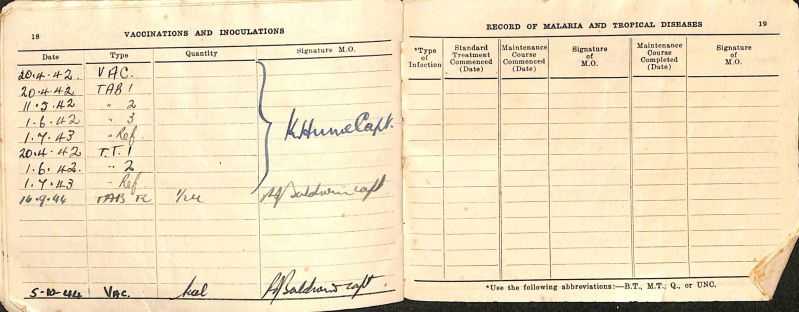 18 VACCINATIONS AND INOCULATIONS
Date Type Quantity Signature M.O.
20.4.42. VAC.
20.4.42 TAB 1
11.5.42 " 2
1.6.42 " 3
1.7.43 " Ref.
20.4.42 T.T. 1
1.6.42. " 2
1.7.43 " Ref
K. Hume Capt.
16.9.44 TAB R Baldwin capt
5-10-44 VAC. Baldwin capt.
RECORD OF MALARIA AND TROPICAL DISEASES 19
*Type of Infection
Standard Treatment Commenced (Date)
Maintenance Course Commenced (Date)
Signature of M.O.
Maintenance Course Completed (Date)
Signature of M.O.
*Use the following abbreviations:—B.T., M.T., Q., or UNC.